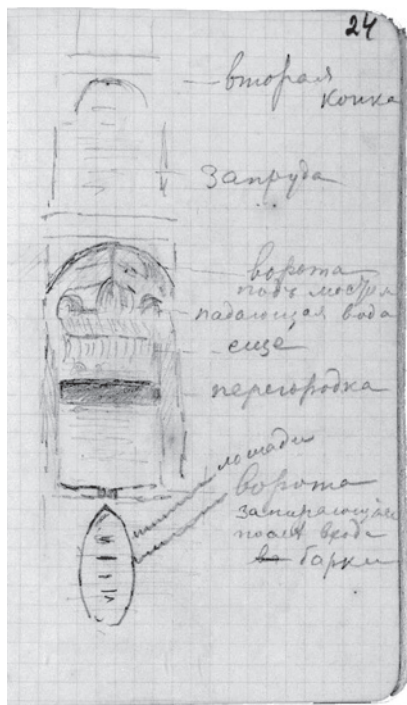 24
вторая
конка
запруда
ворота
подъ мостъ
падающая вода
еще
перегородка
лошади
ворота
запирающіе
послѣ входа
барки